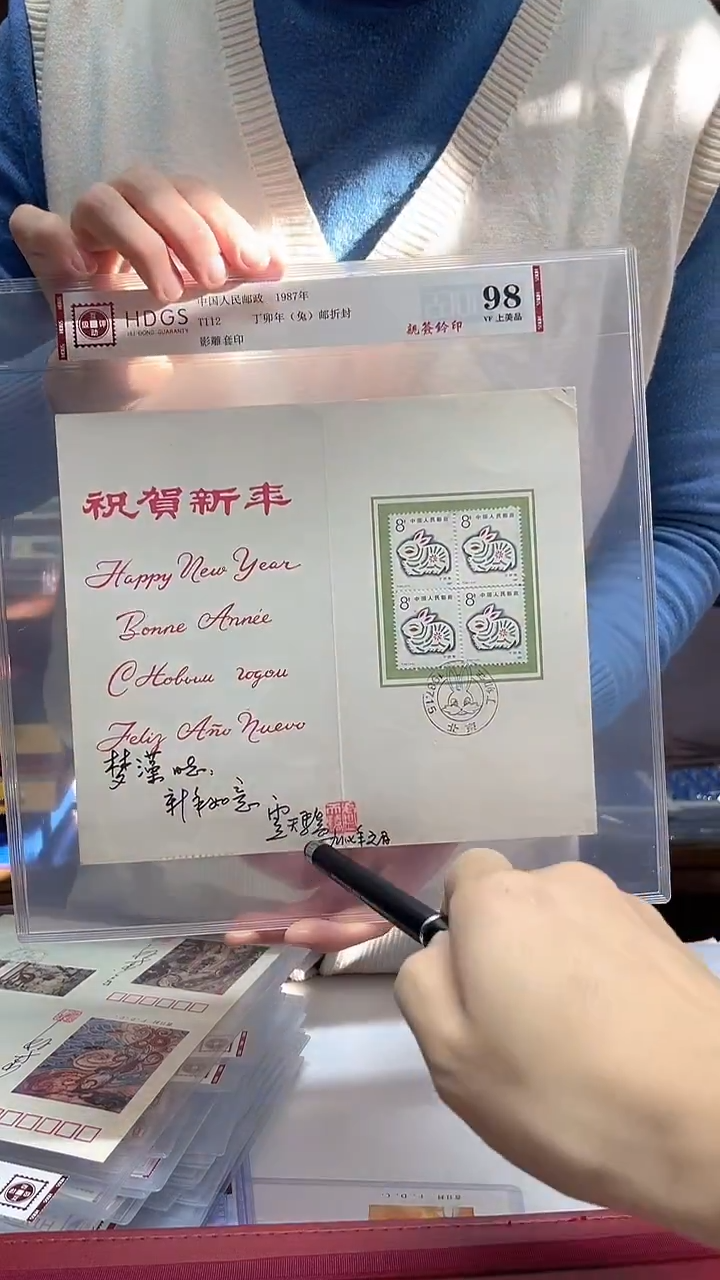 中国人民邮政 1987年
HDGS
HU DONG GUARANTY
T112 丁卯年（兔）邮折封
影雕套印
98
YF 上美品
祝賀新年
Happy New Year
Bonne Année
С Новым годом
Feliz Año Nuevo
梦漢
新年如意
8分 中国人民邮政
8分 中国人民邮政
8分 中国人民邮政
8分 中国人民邮政
1987.1.5
F. D. C.